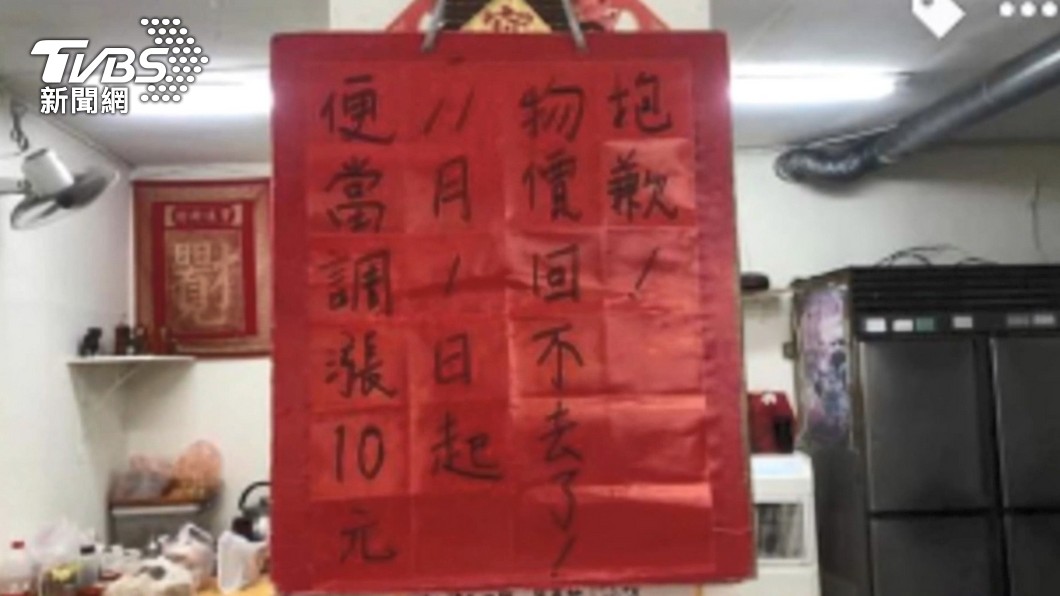 TVBS
新聞網
抱歉！
物價回不去了！
11月1日起
便當調漲10元